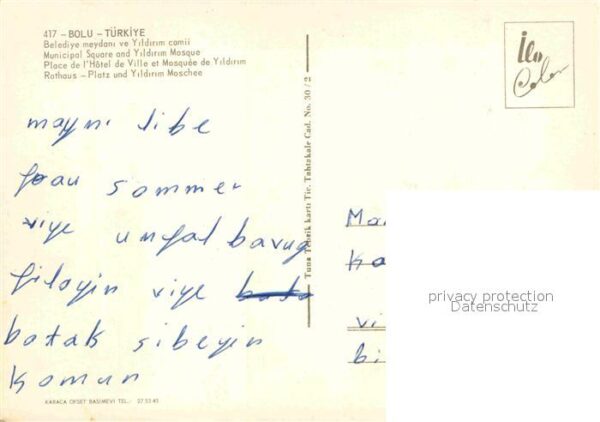 417 – BOLU – TÜRKİYE
Belediye meydanı ve Yıldırım camii
Municipal Square and Yıldırım Mosque
Place de l'Hôtel de Ville et Mosquée de Yıldırım
Rathaus – Platz und Yıldırım Moschee
İlo
Color
mayni libe
frau sommer
viye unfal bavug
filayin viye
batak sibeyin
komun
Tuna Tebrik kartı Tic. Tahtakale Cad. No. 30/2
Ma
Ka
vi
bi
privacy protection
Datenschutz
KARACA OFSET BASIMEVİ TEL.: 27 53 40